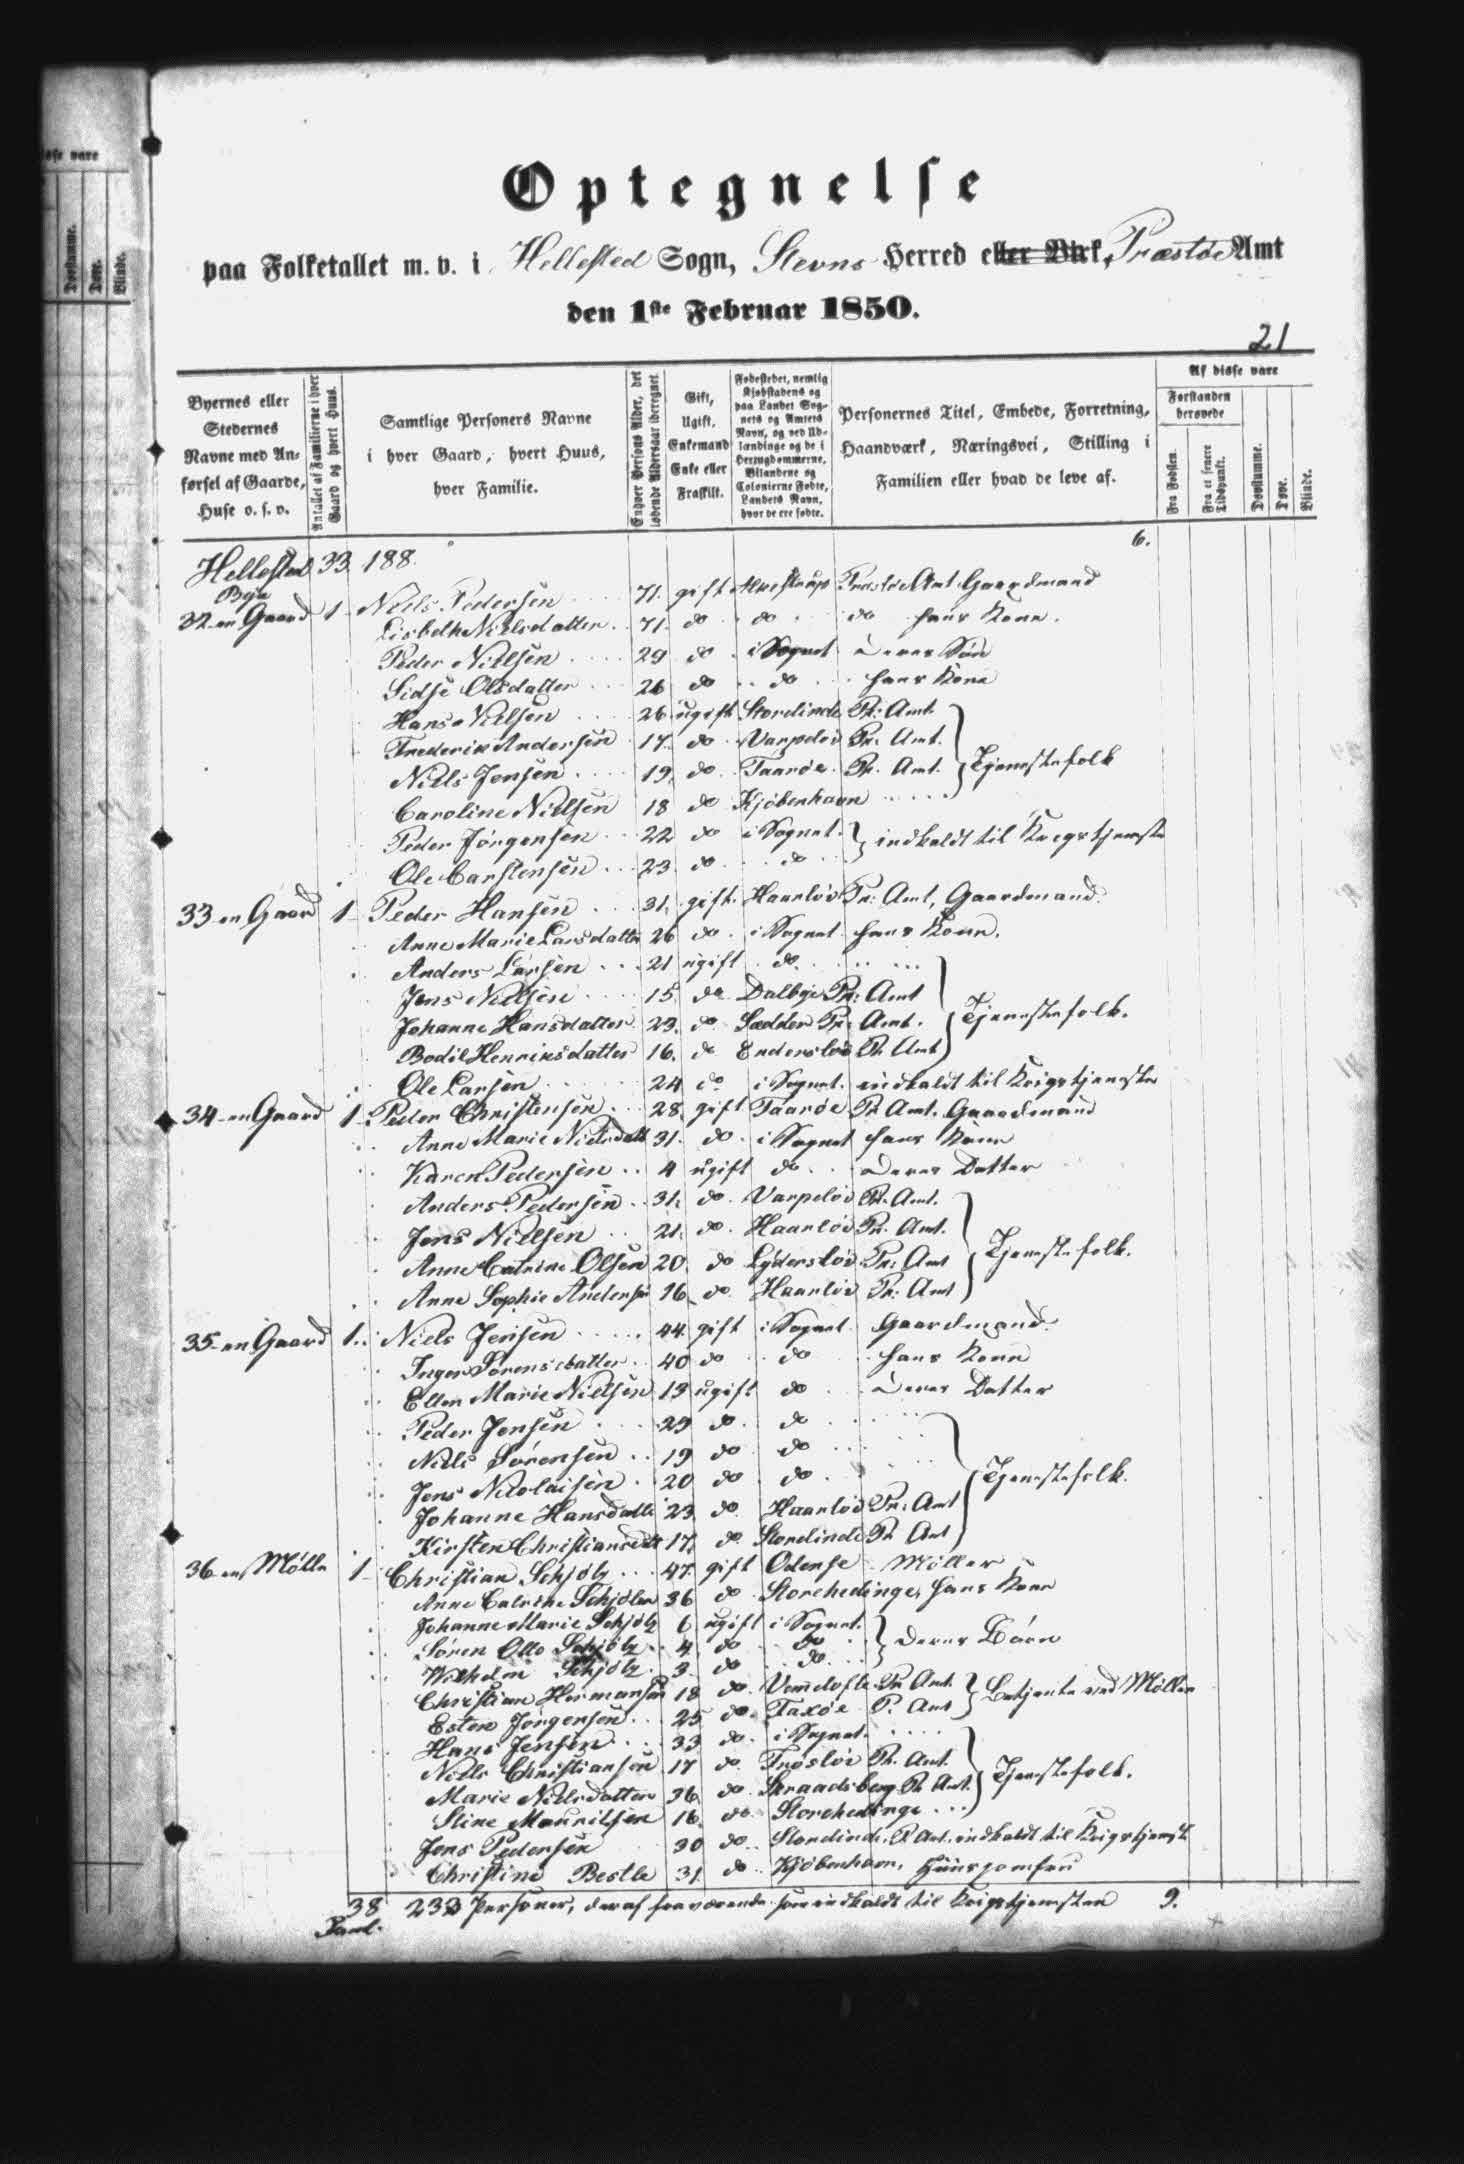 Optegnelse
paa Folketallet m. v. i Hellested Sogn, Stevns Herred eller Birk, Præstøe Amt
den 1ste Februar 1850.
21
Byernes eller Stedernes Navne med Anførsel af Gaarde, Huse o. s. v.
Antallet af Familierne i hver Gaard og hvert Huus.
Samtlige Personers Navne i hver Gaard, hvert Huus, hver Familie.
Enhver Persons Alder, det løbende Aldersaar iberegnet.
Gift, Ugift, Enkemand Enke eller Fraskilt.
Fødestedet, nemlig Kjøbstadens og paa Landet Sognets og Amtets Navn, og ved Udlændinge og de i Hertugdømmerne, Bilandene og Colonierne Fødte, Landets Navn, hvor de ere fødte.
Personernes Titel, Embede, Forretning, Haandværk, Næringsvei, Stilling i Familien eller hvad de leve af.
Af disse vare
Forstanden berøvede
Fra Fødslen.
Fra et senere Tidspunkt.
Døvstumme.
Døve.
Blinde.
Hellested 33 188. 6.
Bye
32 en Gaard 1 Niels Pedersen 71. gift Præstøe Amt Gaardmand
Lisbeth Nielsdatter 71. do do do hans Kone.
Peder Nielsen 29 do i Sognet deres Søn
Sidse Olsdatter 26 do do hans Kone
Hans Nielsen 26 ugift Storelinde Pr: Amt
Frederik Andersen 17. do Varpelev Pr. Amt.
Niels Jensen 19. do Taarøe Pr. Amt. Tjenestefolk
Caroline Nielsen 18 do Kjöbenhavn
Peder Jörgensen 22 do i Sognet. indkaldt til Krigstjeneste
Ole Carstensen 23. do do
33 en Gaard 1 Peder Hansen 31. gift Haarlöv Pr: Amt, Gaardmand.
Anne Marie Larsdatter 26 do i Sognet hans Kone.
Anders Larsen 21 ugift do
Jens Nielsen 15. do Dalbye Pr: Amt
Johanne Hansdatter 23. do Sædder Pr: Amt. Tjenestefolk.
Bodil Henriksdatter 16. do Enderslöv Pr Amt
Ole Larsen 24 do i Sognet. indkaldt til Krigstjeneste
34 en Gaard 1 Peder Christensen 28. gift Taarøe Pr Amt. Gaardmand
Anne Marie Nielsdatt 31. do i Sognet hans Kone
Karen Pedersen 4 ugift do deres Datter
Anders Pedersen 31. do Varpelöv Pr. Amt.
Jens Nielsen 21. do Haarlöv Pr. Amt.
Anne Catrine Olsen 20. do Lyderslöv Pr: Amt Tjenestefolk.
Anne Sophie Andersen 16 do Haarlöv Pr. Amt
35 en Gaard 1 Niels Jensen 44. gift i Sognet Gaardmand.
Inger Sörensdatter 40 do do hans Kone
Ellen Marie Nielsen 13 ugift do deres Datter
Peder Jensen 29 do do
Niels Sörensen 19 do do
Jens Nicolaisen 20 do do Tjenestefolk.
Johanne Hansdatter 23. do Haarlöv Pr: Amt
Kirsten Christiansdt 17. do Storelinde Pr Amt
36 en Mølle 1 Christian Schjötz 47. gift Odense Møller
Anne Catrine Schjöler 36 do Storehedinge, hans Kone
Johanne Marie Schjötz 6 ugift i Sognet.
Sören Otto Schjötz 4. do do deres Börn
Wilhelm Schjötz 3. do do
Christian Hermansen 18 do Vemetofte Pr Amt. Betjente ved Møllen
Esten Jörgensen 25 do Faxöe P. Amt
Hans Jensen 33 do i Sognet.
Niels Christiansen 17 do Frøslöv Pr. Amt.
Marie Nielsdatter 36 do Pr Amt. Tjenestefolk.
Stine Mauritsen 16. do Storehedinge
Jens Pedersen 30 do Storelinde. P Amt. indkaldt til Krigstjenest
Christine Bestle 31. do Kjöbenhavn, Huusjomfru
38 233 Personer, deraf fraværende som indkaldt til Krigstjenesten 9.